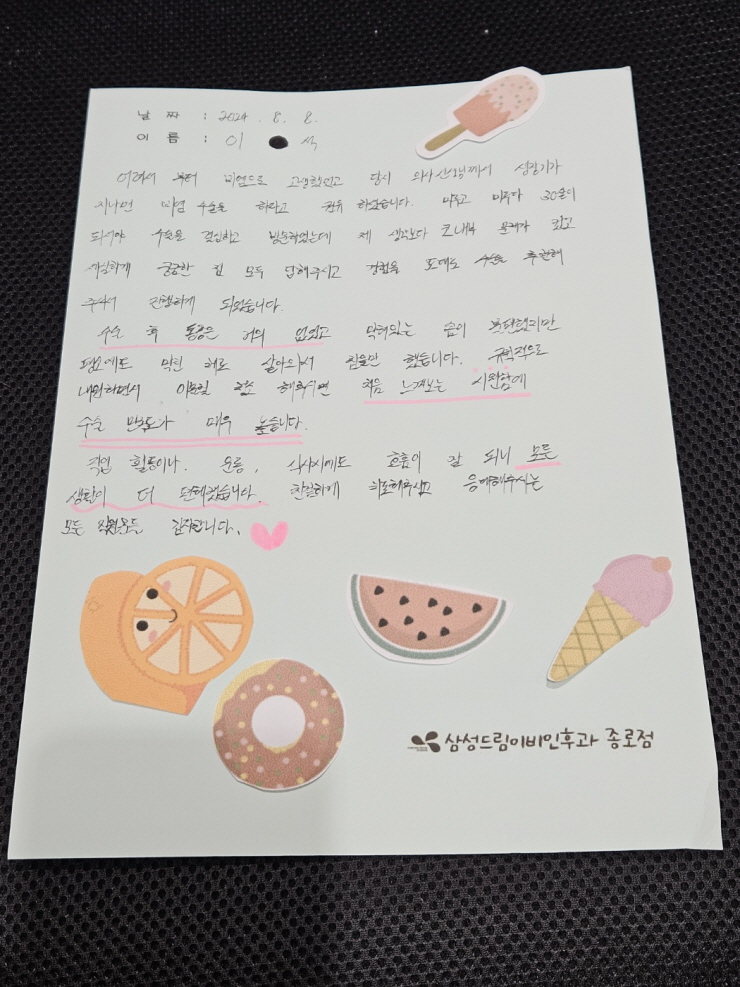 날 짜 : 2024. 8. 8.
이 름 : 이 석
어려서 부터 비염으로 고생했었고 당시 의사선생님께서 성장기가
지나면 비염 수술을 하라고 권유 하셨습니다. 미루고 미루다 30살이
되서야 수술을 결심하고 방문하였는데 제 생각보다 코내부 문제가 있고
세심하게 궁금한 점 모두 답해주시고 경험을 토대로 수술을 추천해
주셔서 진행하게 되었습니다.
수술 후 통증은 거의 없었고 막혀있는 숨이 못탔했지만
평소에도 막힌 채로 살아와서 참을만 했습니다. 규칙적으로
내원하면서 이물질 청소 해주시면 처음 느껴보는 시원함에
수술 만족도가 매우 높습니다.
직업 활동이나, 운동, 식사시에도 호흡이 잘 되니 모든
생활이 더 편해졌습니다. 친절하게 치료해주시고 응대해주시는
모든 직원분들 감사합니다.
삼성드림이비인후과 종로점